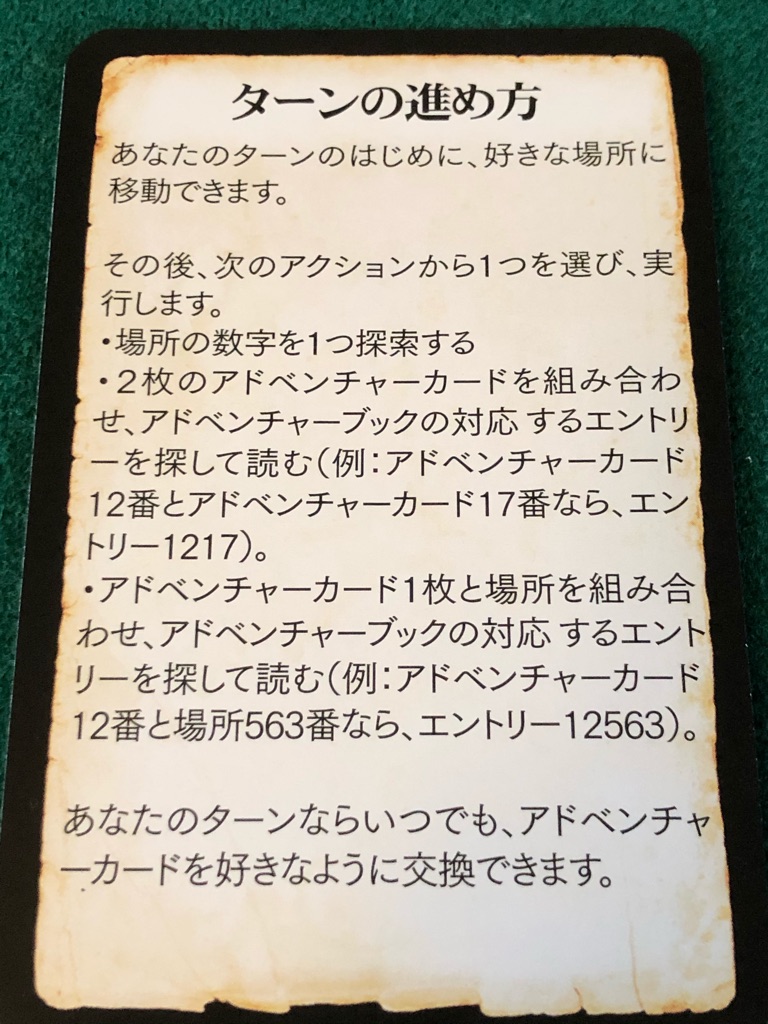 ターンの進め方
あなたのターンのはじめに、好きな場所に
移動できます。
その後、次のアクションから1つを選び、実
行します。
・場所の数字を1つ探索する
・2枚のアドベンチャーカードを組み合わ
せ、アドベンチャーブックの対応 するエントリ
ーを探して読む(例：アドベンチャーカード
12番とアドベンチャーカード17番なら、エン
トリー1217)。
・アドベンチャーカード1枚と場所を組み合
わせ、アドベンチャーブックの対応 するエント
リーを探して読む(例：アドベンチャーカード
12番と場所563番なら、エントリー12563)。
あなたのターンならいつでも、アドベンチャ
ーカードを好きなように交換できます。